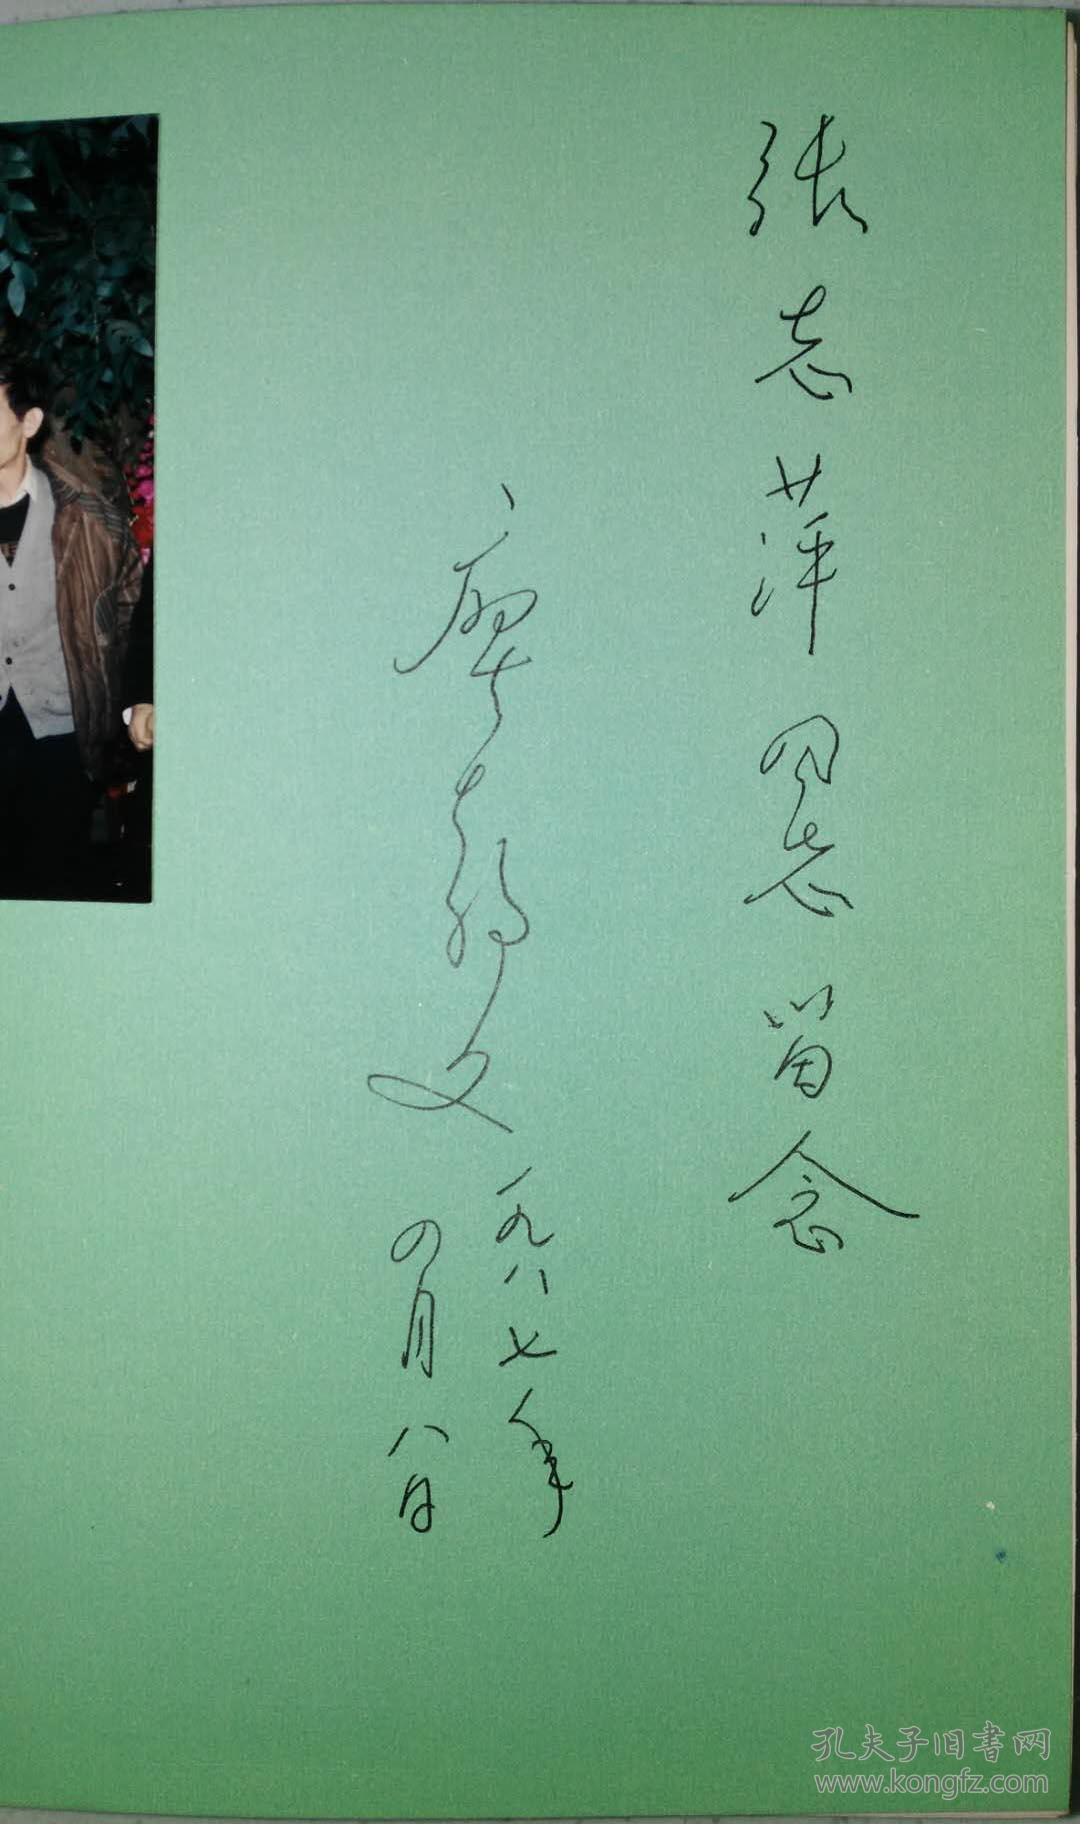 张志萍同志留念
一九八七年
四月八日
孔夫子旧書网
www.kongfz.com